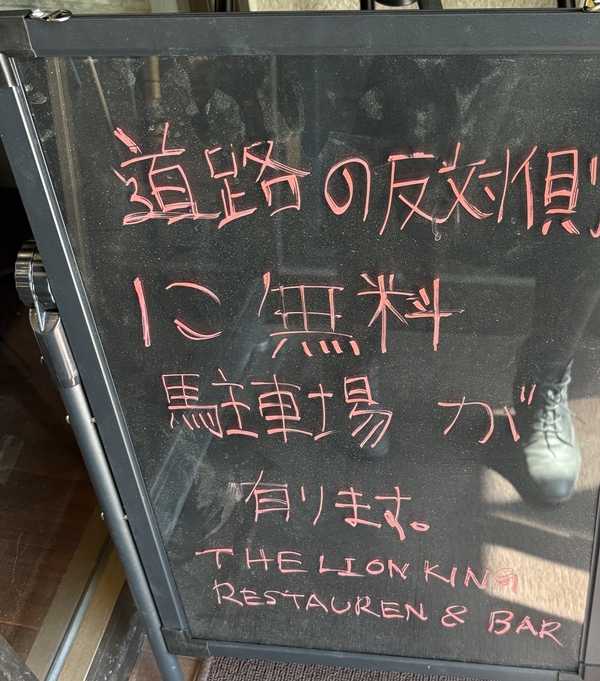 道路の反対側
に無料
駐車場が
有ります。
THE LION KING
RESTAUREN & BAR